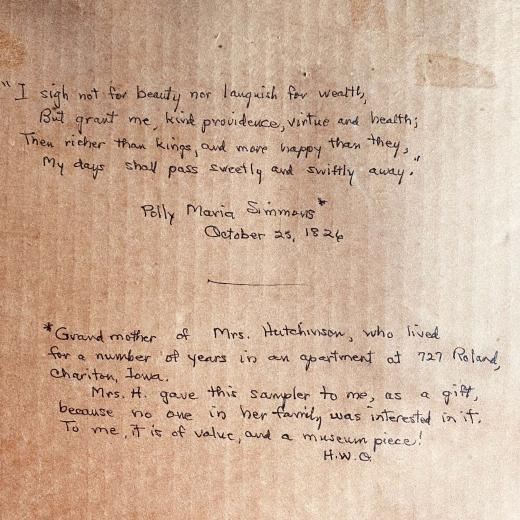 "I sigh not for beauty nor languish for wealth,
But grant me, kind providence, virtue and health;
Then richer than kings, and more happy than they,
My days shall pass sweetly and swiftly away."
Polly Maria Simmons*
October 25, 1826
*Grandmother of Mrs. Hutchinson, who lived
for a number of years in an apartment at 727 Roland,
Chariton, Iowa.
Mrs. H. gave this sampler to me, as a gift,
because no one in her family was interested in it.
To me, it is of value, and a museum piece!
H.W.G.